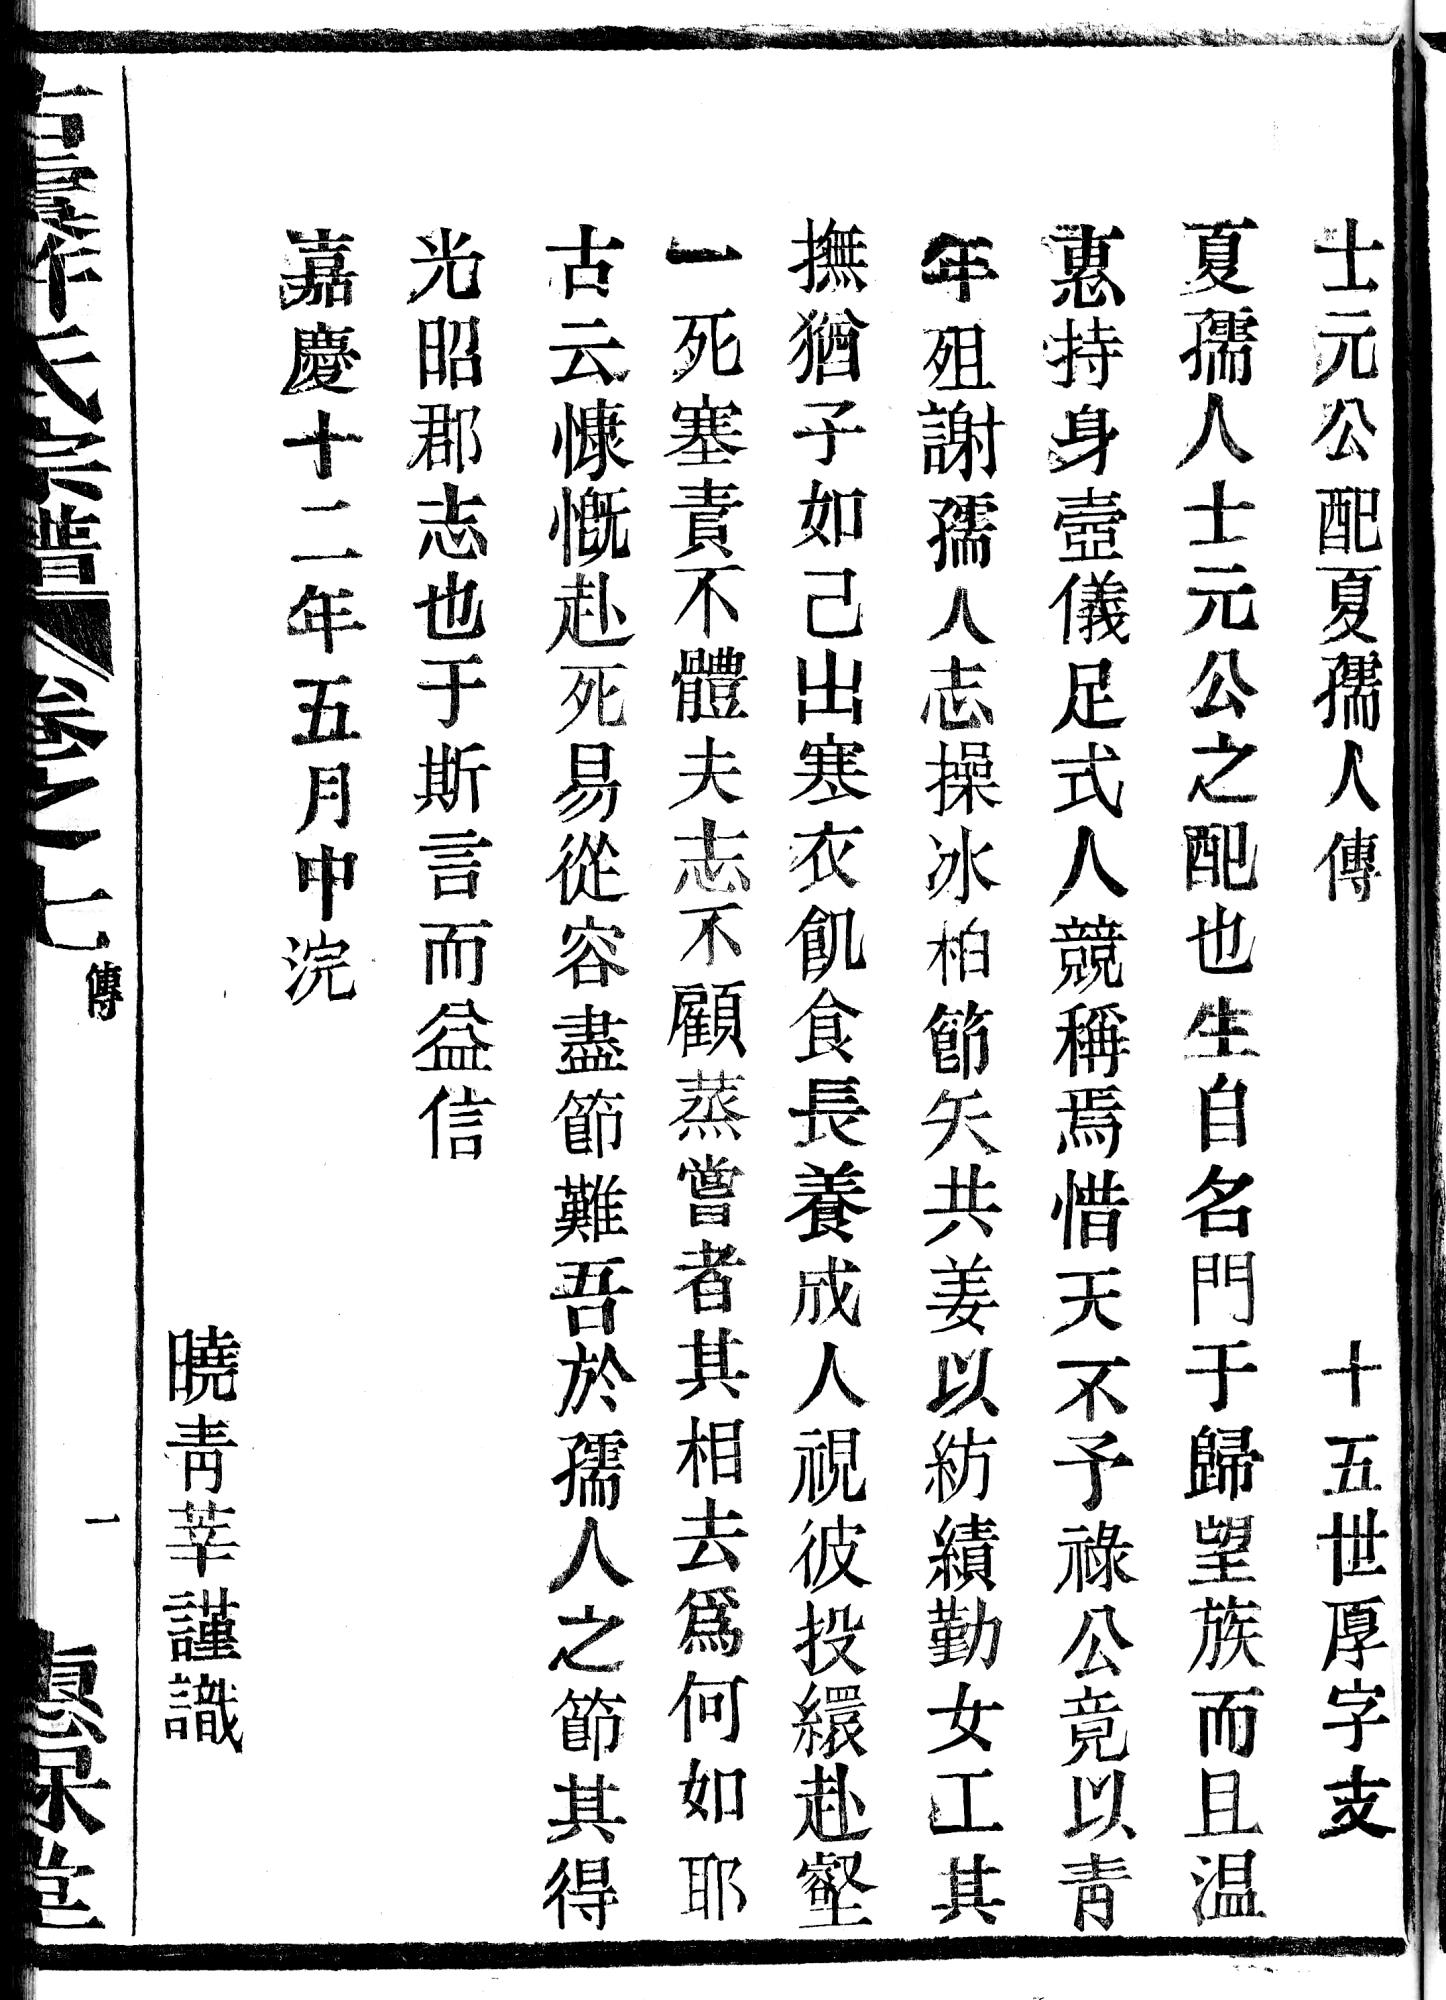 士元公配夏孺人傳　十五世厚字支
夏孺人士元公之配也生自名門于歸望族而且温
惠持身壼儀足式人競稱焉惜天不予祿公竟以青
年殂謝孺人志操冰柏節矢共姜以紡績勤女工其
撫猶子如己出寒衣飢食長養成人視彼投繯赴壑
一死塞責不體夫志不顧蒸嘗者其相去爲何如耶
古云慷慨赴死易從容盡節難吾於孺人之節其得
光昭郡志也于斯言而益信
嘉慶十二年五月中浣
曉青莘謹識
氏宗譜　卷之七　傳　一　惠保堂